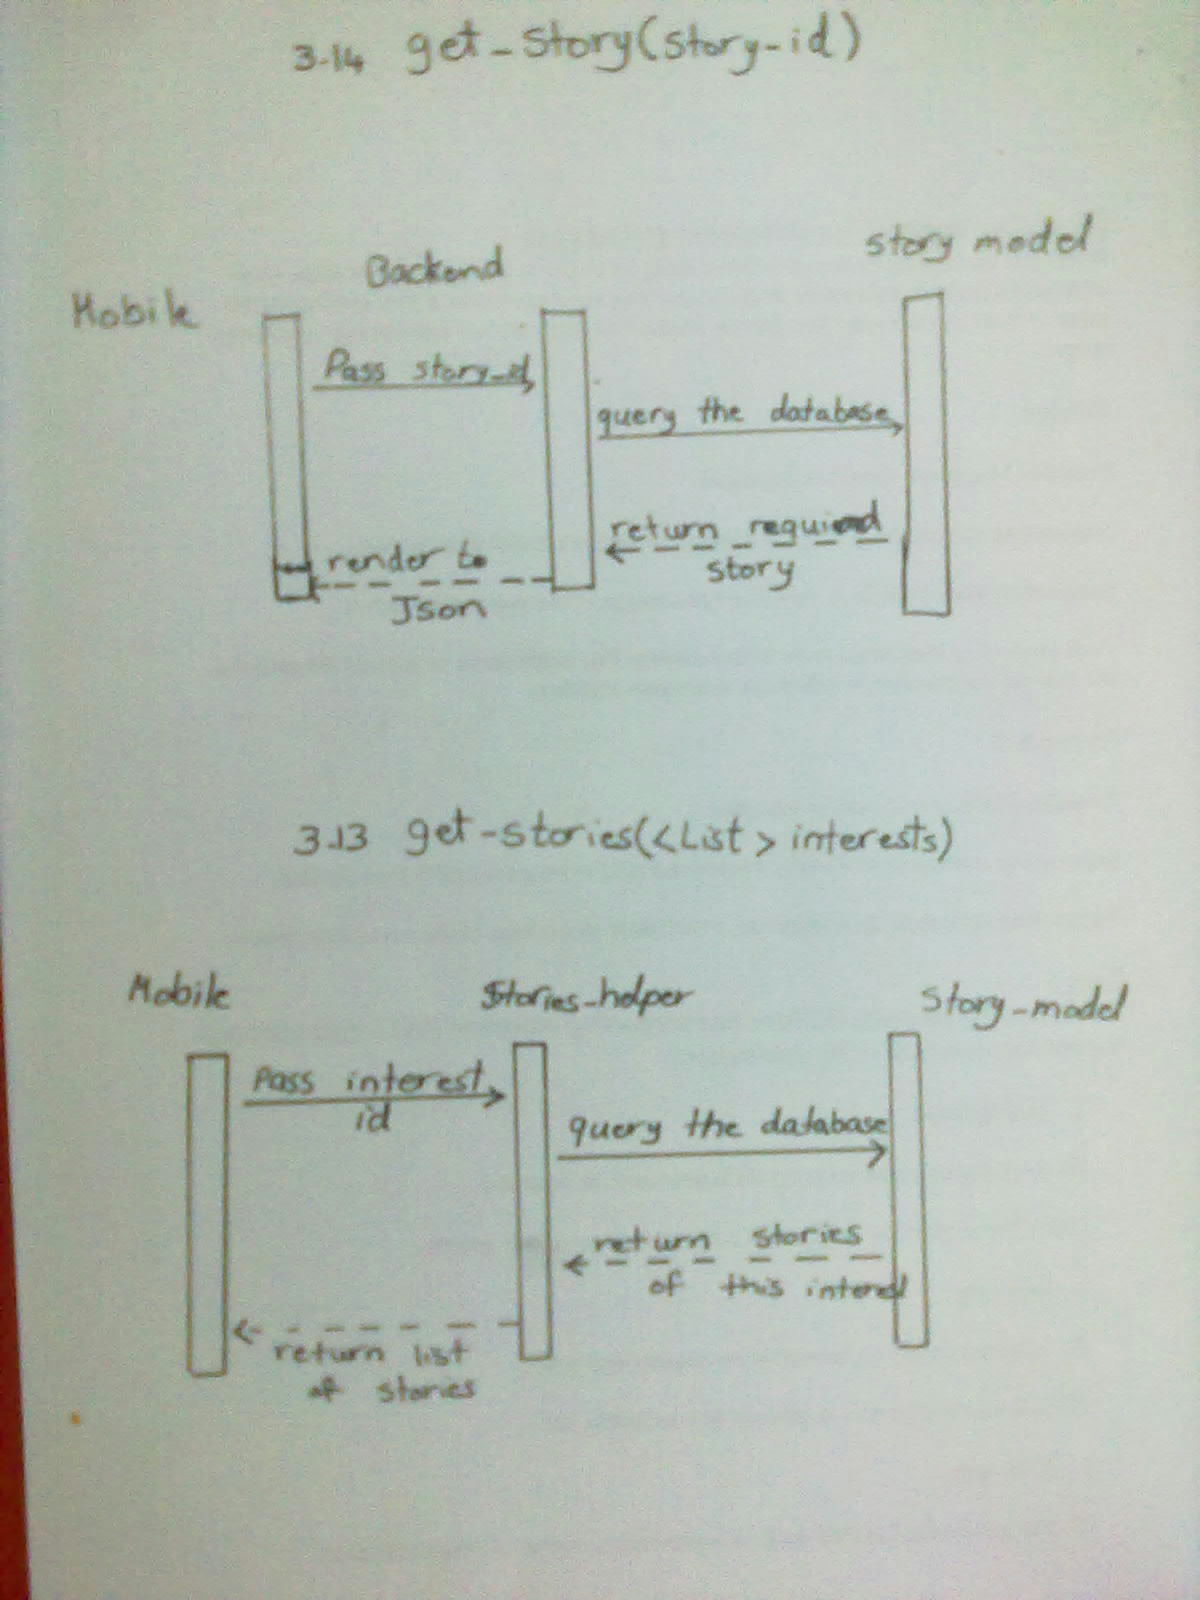 3.14 get-story(story-id)
Mobile
Backend
story model
Pass story-id
query the database
return required
story
render to
Json
3.13 get-stories(<List> interests)
Mobile
Stories-helper
Story-model
Pass interest
id
query the database
return stories
of this interest
return list
of stories